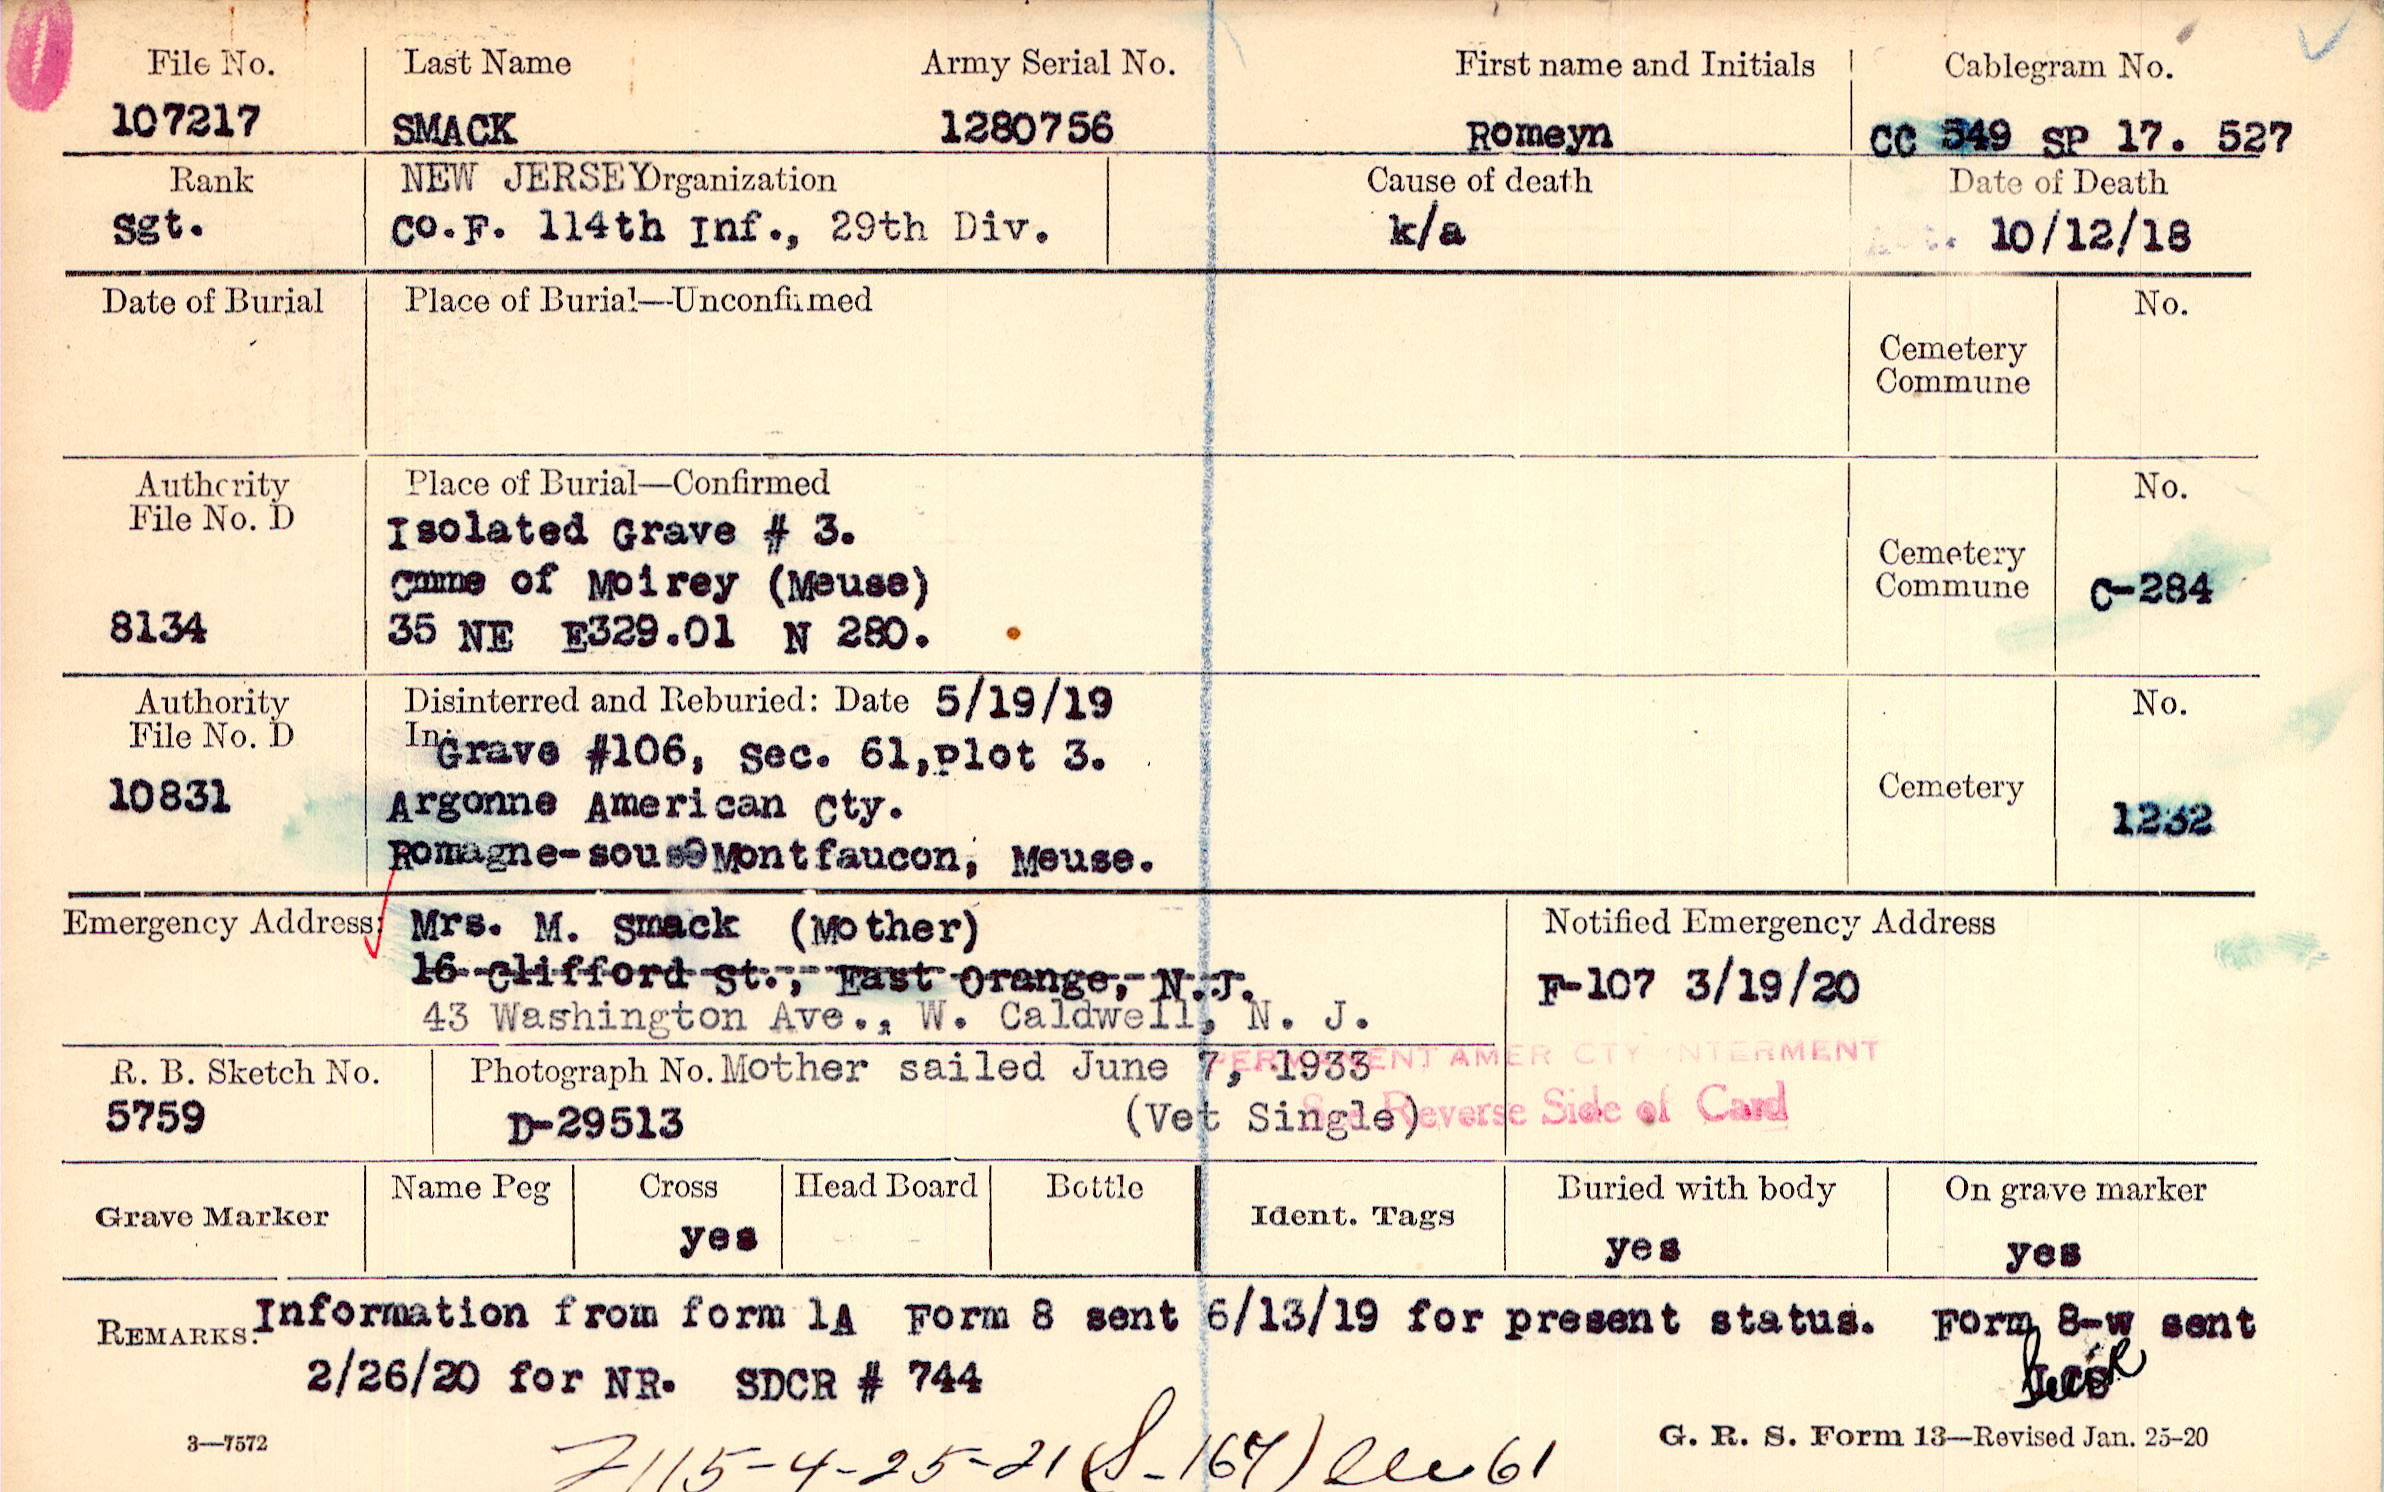 File No. Last Name Army Serial No. First name and Initials Cablegram No.
107217 SMACK 1280756 Romeyn CC 549 SP 17. 527
Rank NEW JERSEY Organization Cause of death Date of Death
Sgt. Co.F. 114th Inf., 29th Div. k/a 10/12/18
Date of Burial Place of Burial—Unconfirmed No.
Cemetery
Commune
Authority Place of Burial—Confirmed No.
File No. D Isolated Grave # 3.
Cmme of Moirey (Meuse) Cemetery
Commune C-284
8134 35 NE E329.01 N 280.
Authority Disinterred and Reburied: Date 5/19/19 No.
File No. D In: Grave #106, Sec. 61,Plot 3.
10831 Argonne American Cty. Cemetery 1232
Romagne-sous Montfaucon, Meuse.
Emergency Address: Mrs. M. Smack (Mother) Notified Emergency Address
16 Clifford St., East Orange, N.J. F-107 3/19/20
43 Washington Ave., W. Caldwell, N. J.
PERMANENT AMER CTY INTERMENT
R. B. Sketch No. Photograph No. Mother sailed June 7, 1933
5759 D-29513 (Vet Single) See Reverse Side of Card
Grave Marker Name Peg Cross Head Board Bottle Ident. Tags Buried with body On grave marker
yes yes yes
REMARKS: Information from form 1A Form 8 sent 6/13/19 for present status. Form 8-W sent
2/26/20 for NR. SDCR # 744
3—7572 G. R. S. Form 13—Revised Jan. 25-20
4-25-21 (S-167) 61